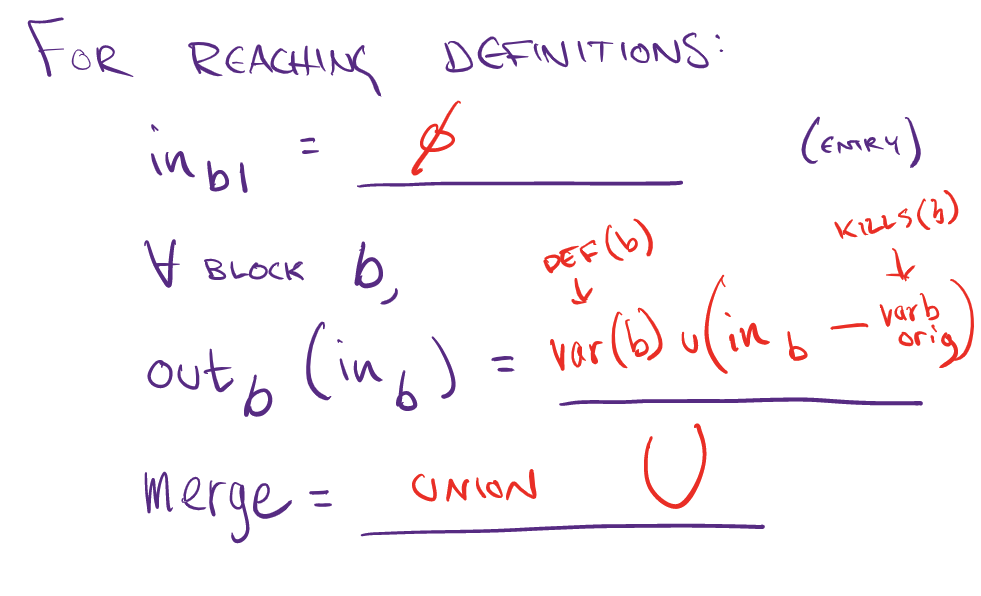 FOR REACHING DEFINITIONS:
in b1 = ϕ (ENTRY)
DEF(b) KILLS(b)
∀ BLOCK b, ↓ ↓
out b (in b) = var(b) ∪ (in b − var b orig)
merge = UNION ∪